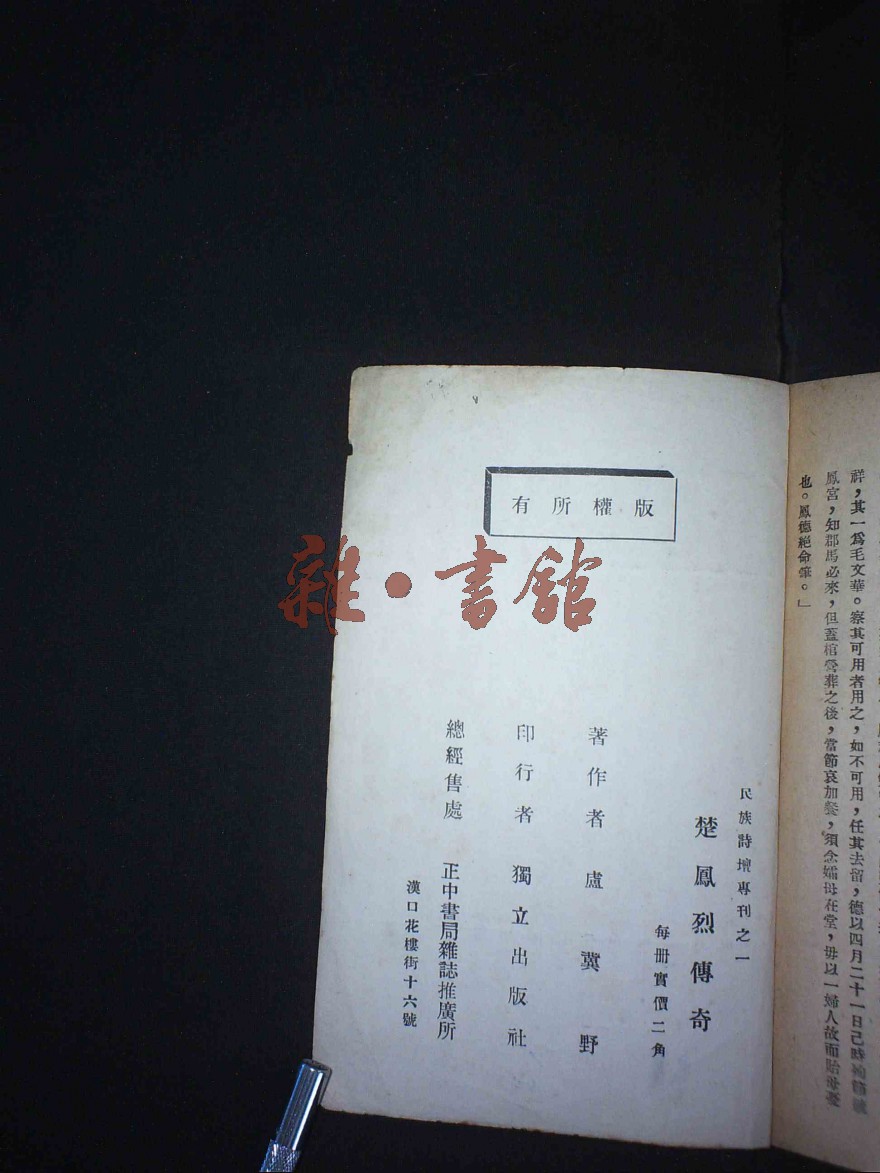 祥，其一為毛文華。察其可用者用之，如不可用，任其去留，德以四月二十一日己時
鳳宮，知郡馬必來，但蓋棺營葬之後，當節哀加餐，須念孀母在堂，毋以一婦人故而貽母憂
也。鳳德絕命筆。」
版權所有
民族詩壇專刊之一
楚鳳烈傳奇
每冊實價二角
著作者 盧冀野
印行者 獨立出版社
總經售處 正中書局雜誌推廣所
漢口花樓街十六號
雜·書館